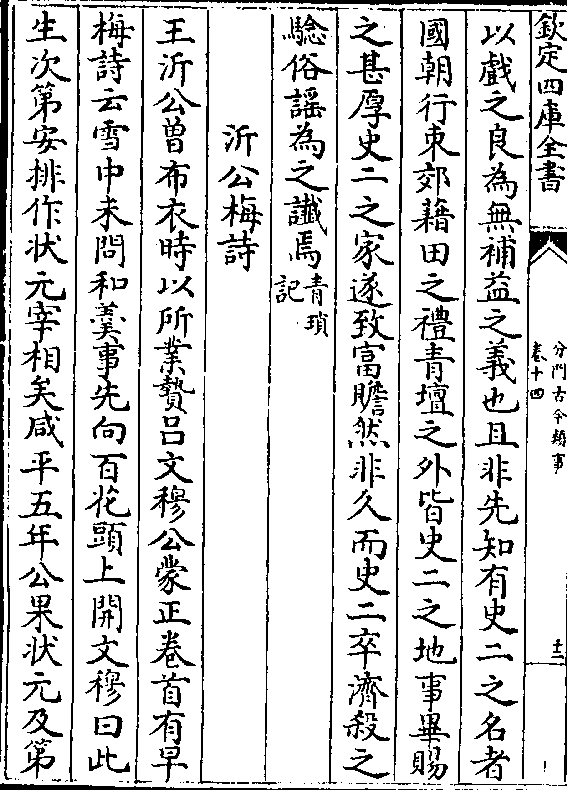 欽定四庫全書
分門古今類事
卷十四
十二
以戲之良為無補益之義也且非先知有史二之名者
國朝行東郊藉田之禮青壇之外皆史二之地事畢賜
之甚厚史二之家遂致富贍然非久而史二卒濟殺之
騐俗謡為之讖焉青瑣
記
沂公梅詩
王沂公曾布衣時以所業贄吕文穆公蒙正卷首有早
梅詩云雪中未問和羮事先向百花頭上開文穆曰此
生次第安排作状元宰相矣咸平五年公果状元及第